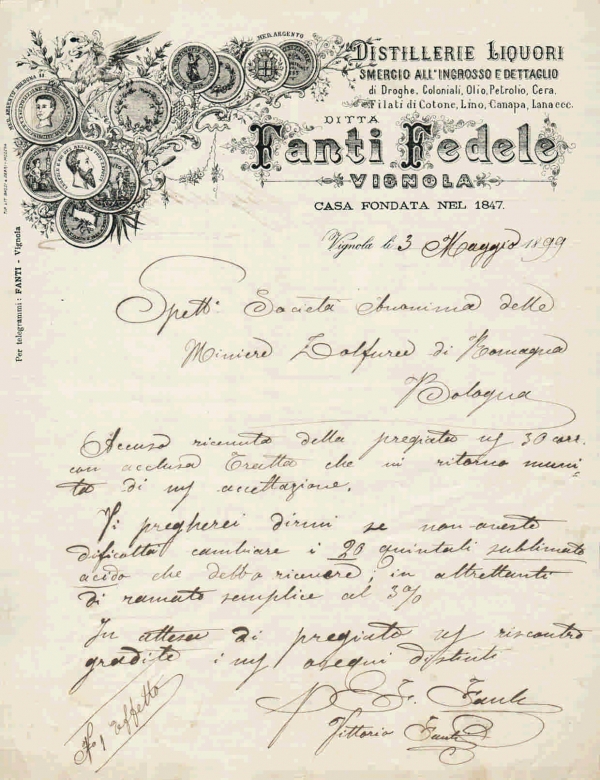 DISTILLERIE LIQUORI
SMERCIO ALL'INGROSSO E DETTAGLIO
di Droghe, Coloniali, Olio, Petrolio, Cera,
Filati di Cotone, Lino, Canapa, Lana ecc.
DITTA
Fanti Fedele
VIGNOLA
CASA FONDATA NEL 1847.
MED. ARGENTO
Per telegrammi: FANTI - Vignola
Vignola li 3 Maggio 1899
Spett. Società Anonima delle
Miniere Zolfuree di Romagna
Bologna
Accuso ricevuta della pregiata vs 30 corr.
con acclusa Tratta che vi ritorno muni-
ta di mj accettazione.
Vi pregherei dirmi se non aveste
dificoltà cambiare i 20 quintali sublimato
acido che debbo ricevere; in altrettanti
di ramato semplice al 3%
In attesa di pregiato vs riscontro
gradite i mj ossequi distinti
F. Fanti
Vittorio Fanti
N 1 effetto